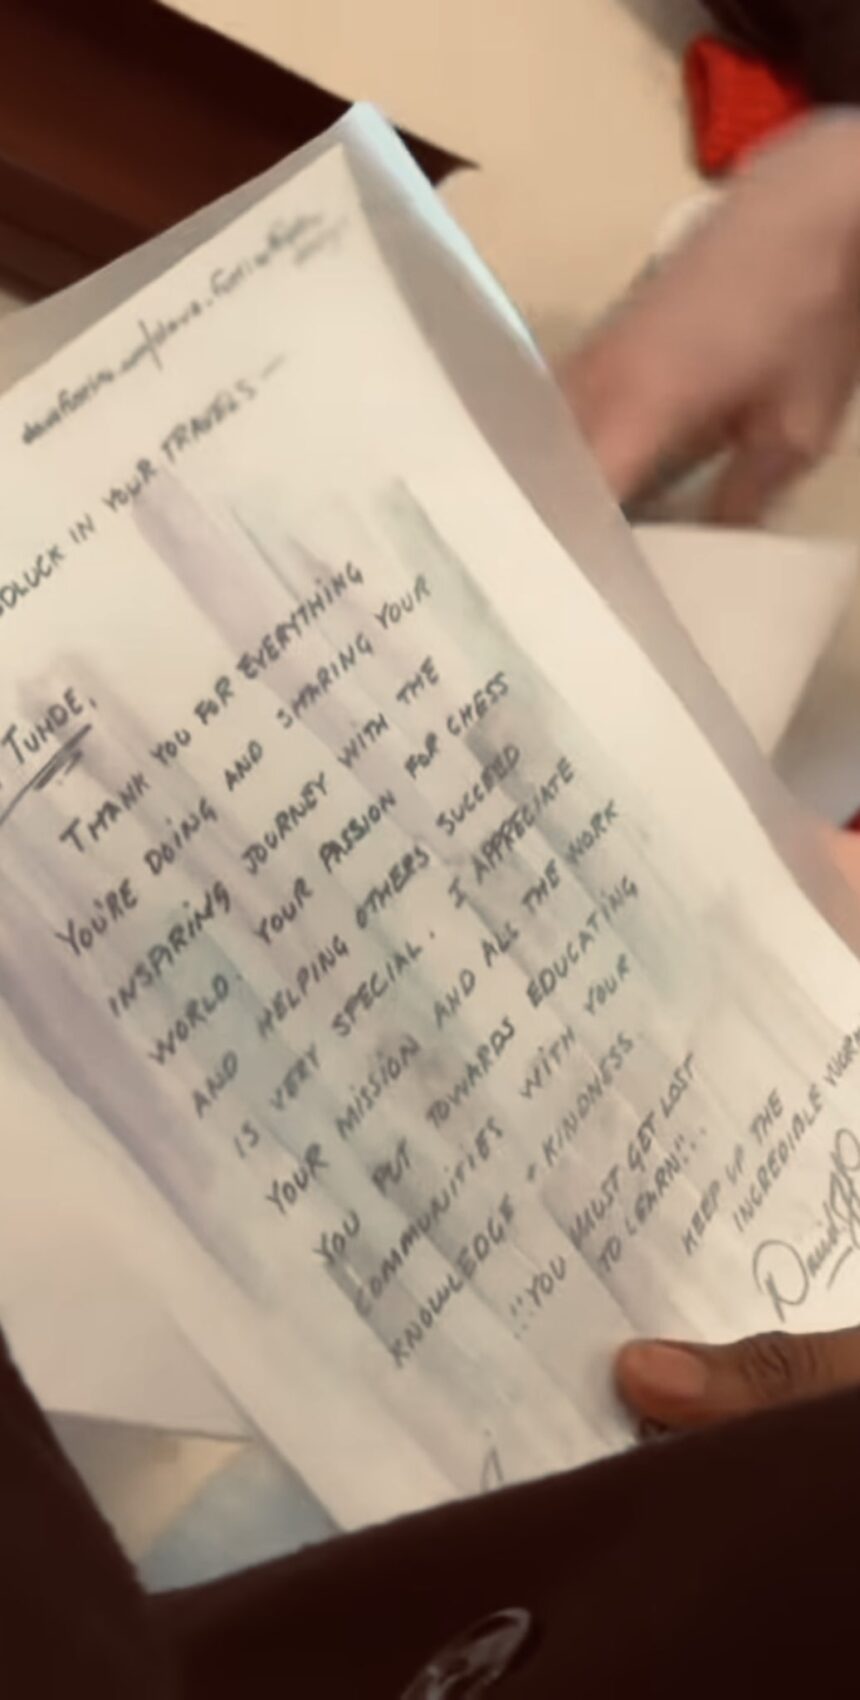 ODLUCK IN YOUR TRAVELS —
TUNDE,
THANK YOU FOR EVERYTHING
YOU'RE DOING AND SHARING YOUR
INSPIRING JOURNEY WITH THE
WORLD. YOUR PASSION FOR CHESS
AND HELPING OTHERS SUCCEED
IS VERY SPECIAL. I APPRECIATE
YOUR MISSION AND ALL THE WORK
YOU PUT TOWARDS EDUCATING
COMMUNITIES WITH YOUR
KNOWLEDGE + KINDNESS.
"YOU MUST GET LOST
TO LEARN"..
KEEP UP THE
INCREDIBLE WORK
David